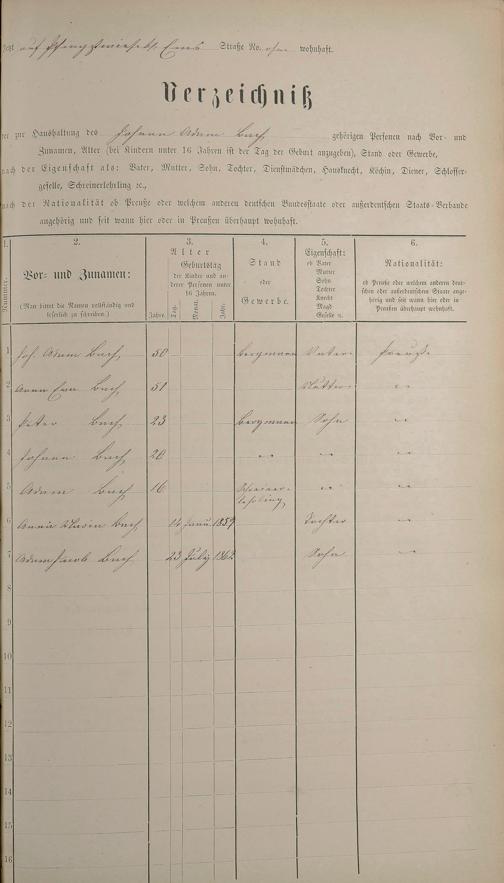 Jetzt auf Pfingstwiese b. Ems Straße No. ohne wohnhaft.
Verzeichniß
der zur Haushaltung des Johann Adam Bach gehörigen Personen nach Vor- und
Zunamen, Alter (bei Kindern unter 16 Jahren ist der Tag der Geburt anzugeben), Stand oder Gewerbe,
nach der Eigenschaft als: Vater, Mutter, Sohn, Tochter, Dienstmädchen, Hausknecht, Köchin, Diener, Schlosser-
geselle, Schreinerlehrling ꝛc.,
nach der Nationalität ob Preuße oder welchem anderen deutschen Bundesstaate oder außerdeutschen Staats-Verbande
angehörig und seit wann hier oder in Preußen überhaupt wohnhaft.
1. 2. 3. 4. 5. 6.
Nummer.
Vor- und Zunamen:
(Man bittet die Namen vollständig und
leserlich zu schreiben.)
Alter
Geburtstag
der Kinder und an-
derer Personen unter
16 Jahren.
Jahre. Tag. Monat. Jahr.
Stand
oder
Gewerbe.
Eigenschaft:
ob Vater
Mutter
Sohn
Tochter
Knecht
Magd
Geselle ꝛc.
Nationalität:
ob Preuße oder welchem anderen deut-
schen oder außerdeutschen Staate ange-
hörig und seit wann hier oder in
Preußen überhaupt wohnhaft.
1 Joh. Adam Bach 50 Bergmann Vater Preuße
2 Anna Eva Bach 51 Mutter "
3 Peter Bach 23 Bergmann Sohn "
4 Johann Bach 20 " " "
5 Adam Bach 16 Schreiner- " "
lehrling
6 Anna Maria Bach 16 Janu. 1859 Tochter "
7 Adam Jacob Bach 23 July 1862 Sohn "
8
9
10
11
12
13
14
15
16